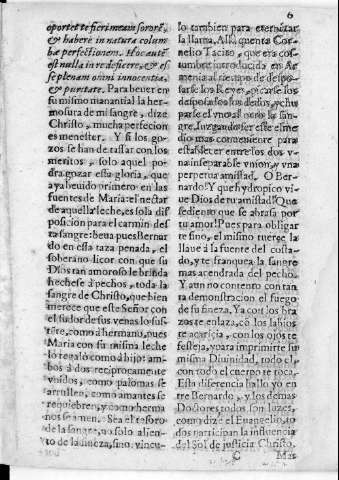 6
oportet te fieri meam sororẽ,
& habere in natura colum
bæ perfectionem. Hoc autẽ
est nulla in re deficere, & es
se plenam omni innocentia,
& puritate. Para beuer en
su mismo manantial la her-
mosura de mi sangre, dize
Christo, mucha perfecion
es menester. Y si los go-
zos se han de tassar con los
meritos, solo aquel po
dra gozar essa gloria, que
aya beuido primero en las
fuentes de Maria: el nectar
de aquella leche, es sola dis
posicion para el carmin des
ta sangre: beua pues Bernar
do en essa taza penada, el
soberano licor con que su
Dios tan amoroso le brinda
hechese à pechos, toda la
sangre de Christo, que bien
merece que este Señor con
el sudor de sus venas lo sus-
tẽte, como à hermano, pues
Maria con su misma leche
lo regalò como à hijo: am-
bos à dos reciprocamente
vnidos, como palomas se
arrullen, como amantes se
requiebren, y como herma
nos se amen. Sea el tesoro
de la sangre, no solo alien-
to de la fineza, sino vincu-
lo tambien para eternizar
la llama. Assi quenta Cor-
nelio Tacito, que era cos-
tumbre introducida en Ar
menia al tiempo de despo-
sarse los Reyes, picarse los
desposados los dedos, y chu
parse el vno al otro la san-
gre. Iuzgando ser esse el me
dio mas conueniente para
establecer entre los dos v-
na inseparable vnion, y vna
perpetua amistad. O Ber-
nardo! Y que hydropico vi-
ue Dios de tu amistad! Que
sediento que se abrasa por
tu amor! Pues para obligar
te fino, el mismo tuerce la
llaue à la fuente del costa-
do, y te franquea la sangre
mas acendrada del pecho.
Y aun no contento con tan
ta demonstracion el fuego
de su fineza, Ya con los bra
zos te enlaza, cõ los labios
te acaricia, con los ojos te
festeja, y para imprimirte su
misma Diuinidad, todo el,
con todo el cuerpo te toca.
Esta diferencia hallo yo en
tre Bernardo, y los demas
Doctores, todos son luzes,
como dize el Euangelio, to
dos participan la influencia
del Sol de justicia Christo.
C Mas